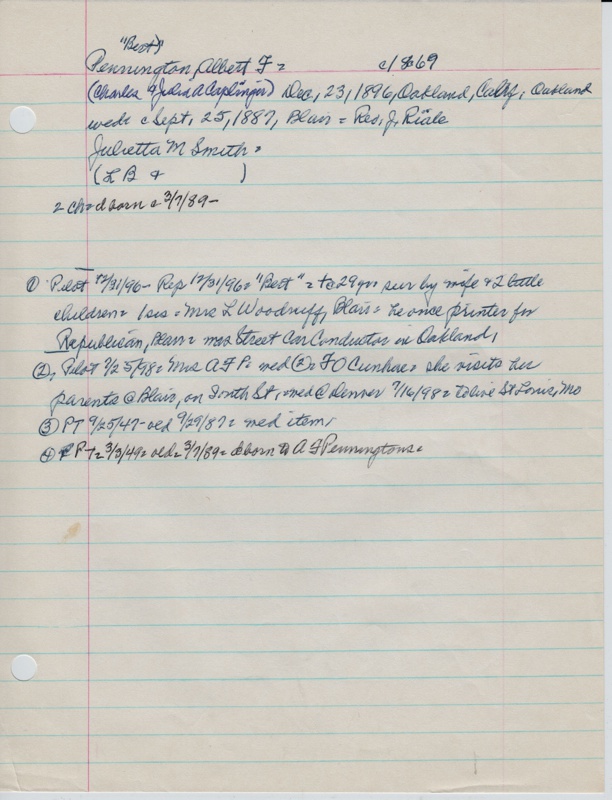 "Bert"
Pennington, Albert F = c/ 1869
(Charles & Julia A Caplinger) Dec, 23, 1896, Oakland, Calif; Oakland
wed= c Sept, 25, 1887, Blair = Rev, J, Riale
Julietta M Smith =
(L B & )
2 ch= d born c 3/7/89-
① Pilot 12/31/96- Rep 12/31/96= "Bert" = to 29 yr= sur by wife & 2 little
children = 1 sis = Mrs L Woodruff, Blair = he once printer for
Republican, Blair = was Street Car Conductor in Oakland,
②, Pilot 7/25/98= Mrs A F P= wed ②= F O Cunhae= she visits her
parents @ Blair, on South St, = wed @ Denver 7/16/98= to live St Louis, Mo
③ PT 9/25/47- old 9/29/87= wed item,
④ PT= 3/3/49= old= 3/7/89= d born to A F Penningtons=